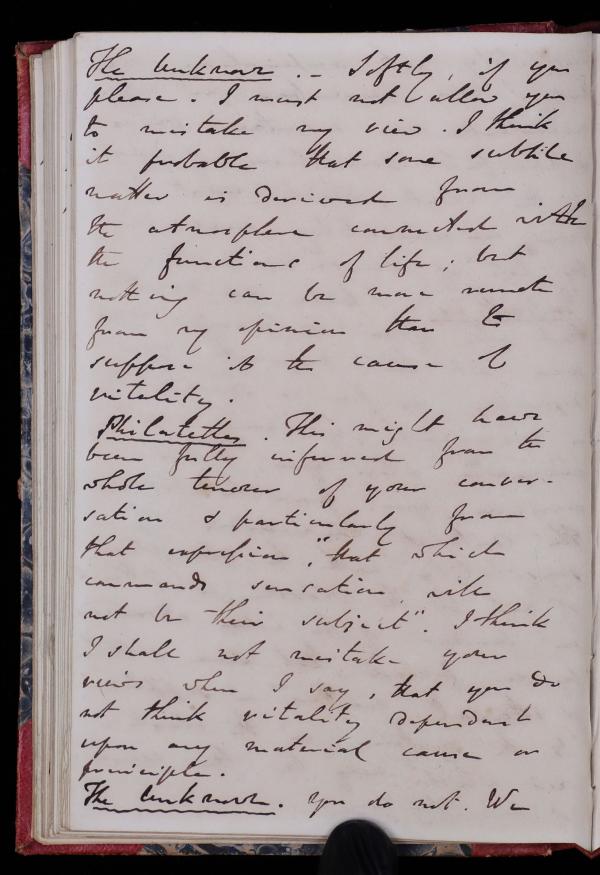 The Unknown. – Softly, if you
please. I must not allow you
to mistake my view. I think
it probable that some subtile
matter is derived from
the atmosphere connected with
the functions of life; but
nothing can be more remote
from my opinion than to
suppose it the cause of
vitality.
Philalethes. This might have
been fully inferred from the
whole tenour of your conver-
sation & particularly from
that expression, "that which
commands sensation will
not be their subject". I think
I shall not mistake your
views when I say, that you do
not think vitality dependent
upon any material cause or
principle.
The Unknown. You do not. We